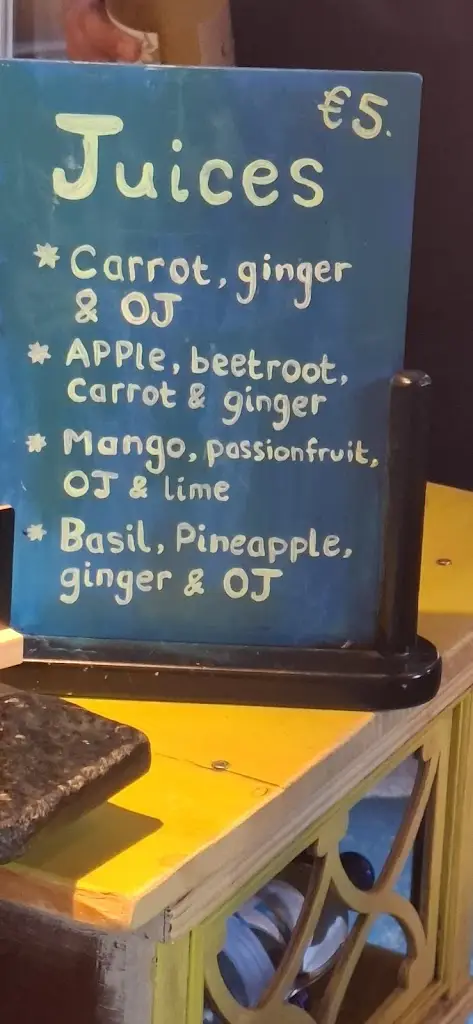 €5.
Juices
* Carrot, ginger
& OJ
* APPle, beetroot,
Carrot & ginger
* Mango, passionfruit,
OJ & lime
* Basil, Pineapple,
ginger & OJ